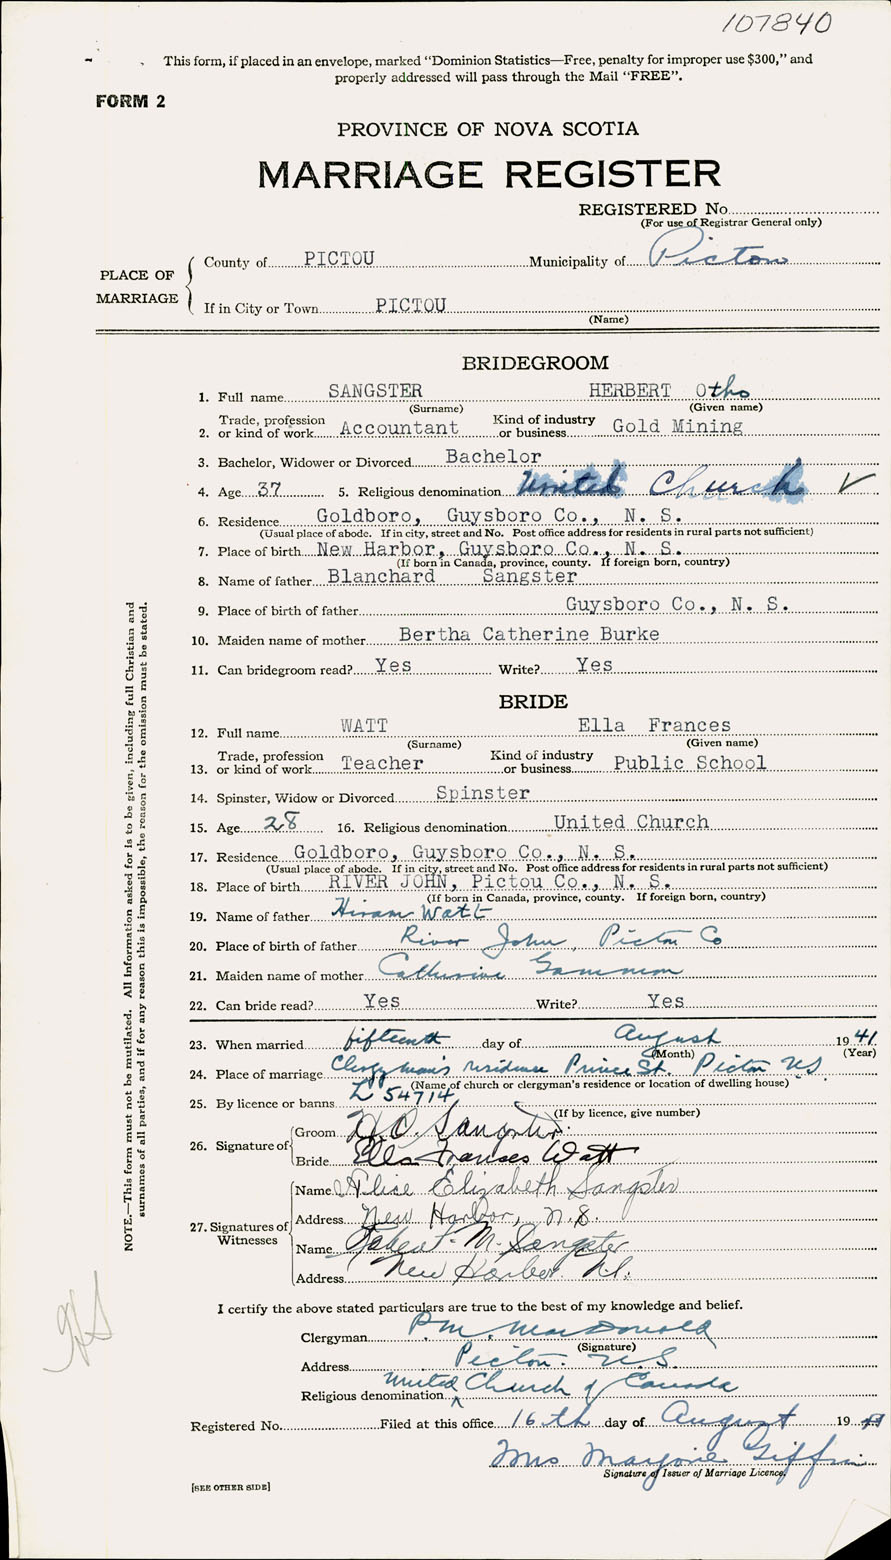 107840
This form, if placed in an envelope, marked "Dominion Statistics—Free, penalty for improper use $300," and
properly addressed will pass through the Mail "FREE".
FORM 2
PROVINCE OF NOVA SCOTIA
MARRIAGE REGISTER
REGISTERED No.
(For use of Registrar General only)
PLACE OF MARRIAGE
County of PICTOU Municipality of Pictou
If in City or Town PICTOU
(Name)
BRIDEGROOM
1. Full name SANGSTER HERBERT Otho
(Surname) (Given name)
2. Trade, profession or kind of work Accountant Kind of industry or business Gold Mining
3. Bachelor, Widower or Divorced Bachelor
4. Age 37 5. Religious denomination United Church ✓
6. Residence Goldboro, Guysboro Co., N. S.
(Usual place of abode. If in city, street and No. Post office address for residents in rural parts not sufficient)
7. Place of birth New Harbor, Guysboro Co., N. S.
(If born in Canada, province, county. If foreign born, country)
8. Name of father Blanchard Sangster
9. Place of birth of father Guysboro Co., N. S.
10. Maiden name of mother Bertha Catherine Burke
11. Can bridegroom read? Yes Write? Yes
BRIDE
12. Full name WATT Ella Frances
(Surname) (Given name)
13. Trade, profession or kind of work Teacher Kind of industry or business Public School
14. Spinster, Widow or Divorced Spinster
15. Age 28 16. Religious denomination United Church
17. Residence Goldboro, Guysboro Co., N. S.
(Usual place of abode. If in city, street and No. Post office address for residents in rural parts not sufficient)
18. Place of birth RIVER JOHN, Pictou Co., N. S.
(If born in Canada, province, county. If foreign born, country)
19. Name of father Hiram Watt
20. Place of birth of father River John, Pictou Co
21. Maiden name of mother Catherine Gammon
22. Can bride read? Yes Write? Yes
23. When married fifteenth day of August 1941
(Month) (Year)
24. Place of marriage Clergyman's residence Prince St. Pictou NS
(Name of church or clergyman's residence or location of dwelling house)
25. By licence or banns L 54714
(If by licence, give number)
26. Signature of Groom H.O. Sangster
Bride Ella Frances Watt
27. Signatures of Witnesses
Name Alise Elizabeth Sangster
Address New Harbor, N.S.
Name Robert M. Sangster
Address New Harbor N.S.
I certify the above stated particulars are true to the best of my knowledge and belief.
Clergyman P.M. MacDonald
(Signature)
Address Pictou. N.S.
Religious denomination United Church of Canada
Registered No. Filed at this office 16th day of August 1941
Mrs Marjorie Giffin
Signature of Issuer of Marriage Licence.
[SEE OTHER SIDE]
NOTE.—This form must not be mutilated. All information asked for is to be given, including full Christian and
surnames of all parties, and if for any reason this is impossible, the reason for the omission must be stated.